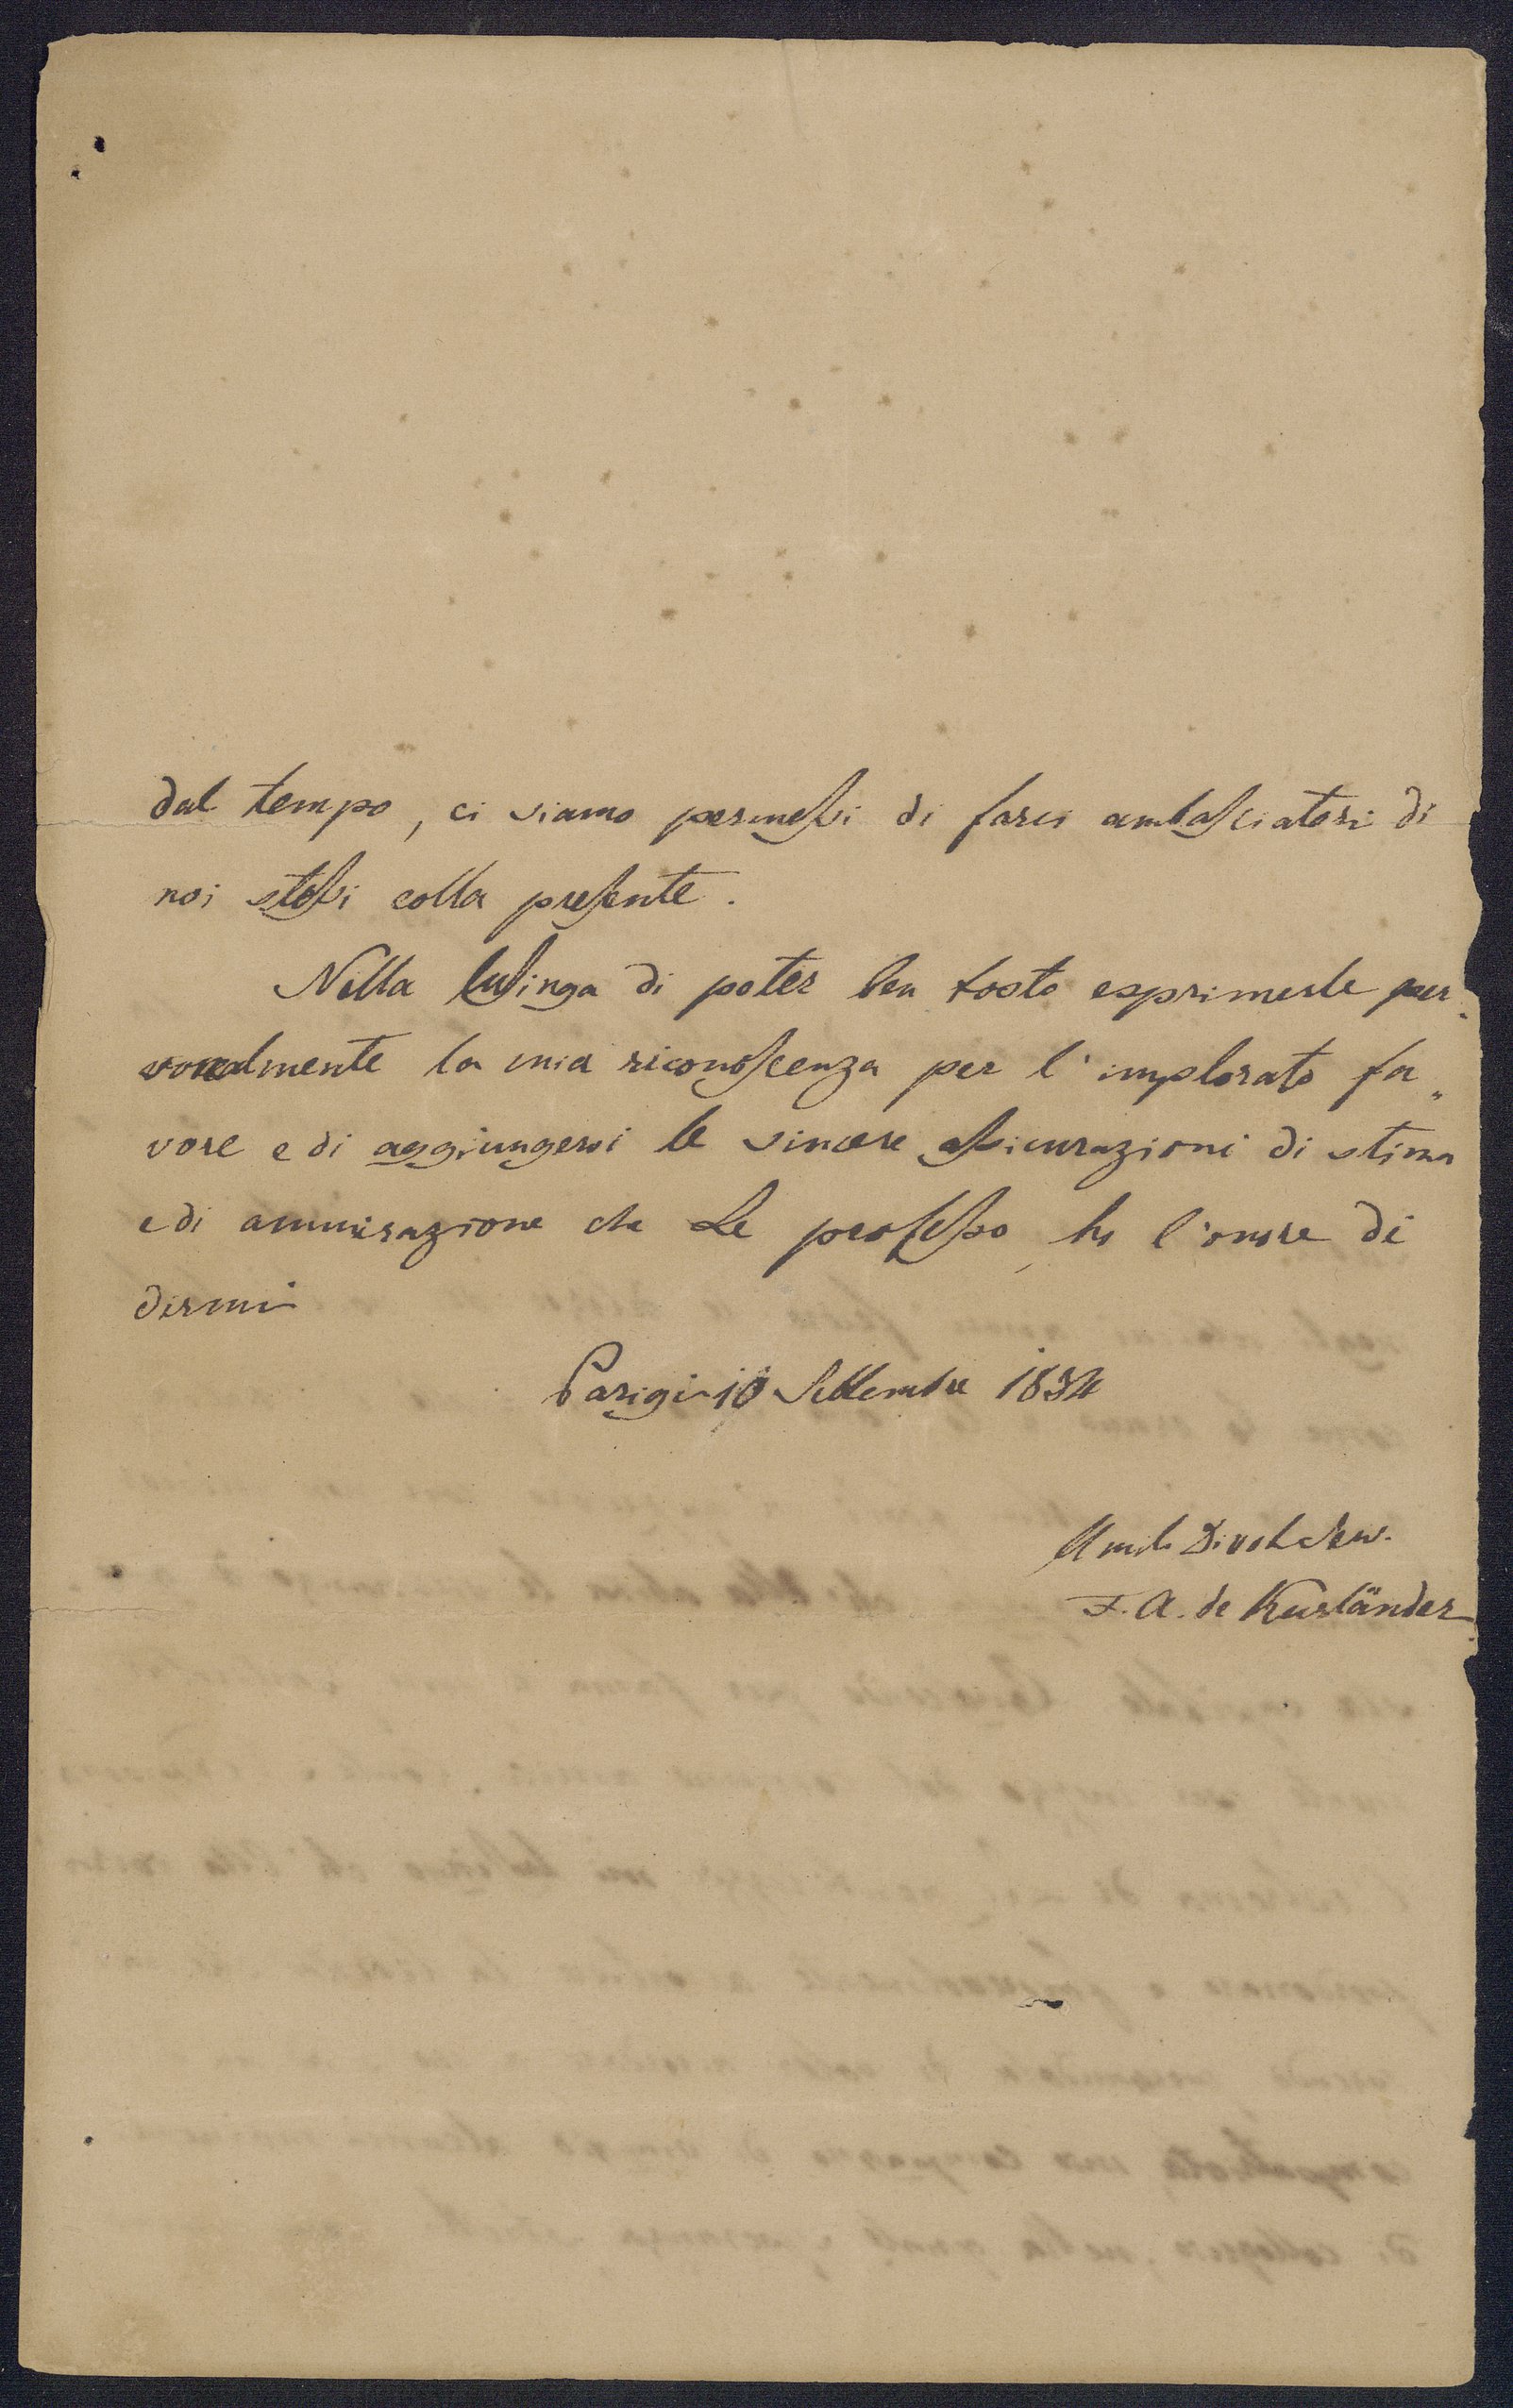 dal tempo, ci siamo permeſsi di farci ambaſciatori di
noi steſsi colla preſente.
Nella luſinga di poter ben tosto esprimerle per„
sonalmente la mia riconoſcenza per l'implorato fa„
vore e di aggiungervi le sincere aſsicurazioni di stima
e di ammirazione che Le profeſso, ho l'onore di
dirmi
Parigi 10 Settembre 1834
Umil. Divot. Serv.
F. A. de Kurländer